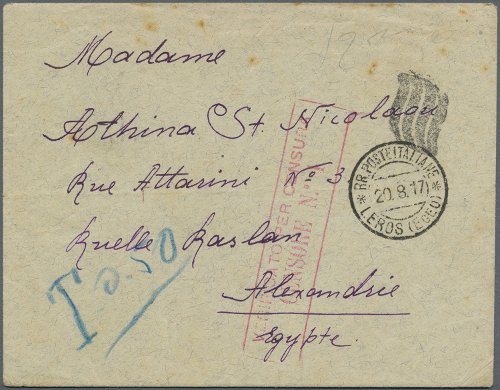 Madame
Athina St. Nicolaou
Rue Attarini No 3
Ruelle Raslan
Alexandrie
Egypte.
T 0.50
RR. POSTE ITALIANE
20.8.17
LEROS (EGEO)
CENSOR
CENSURE No